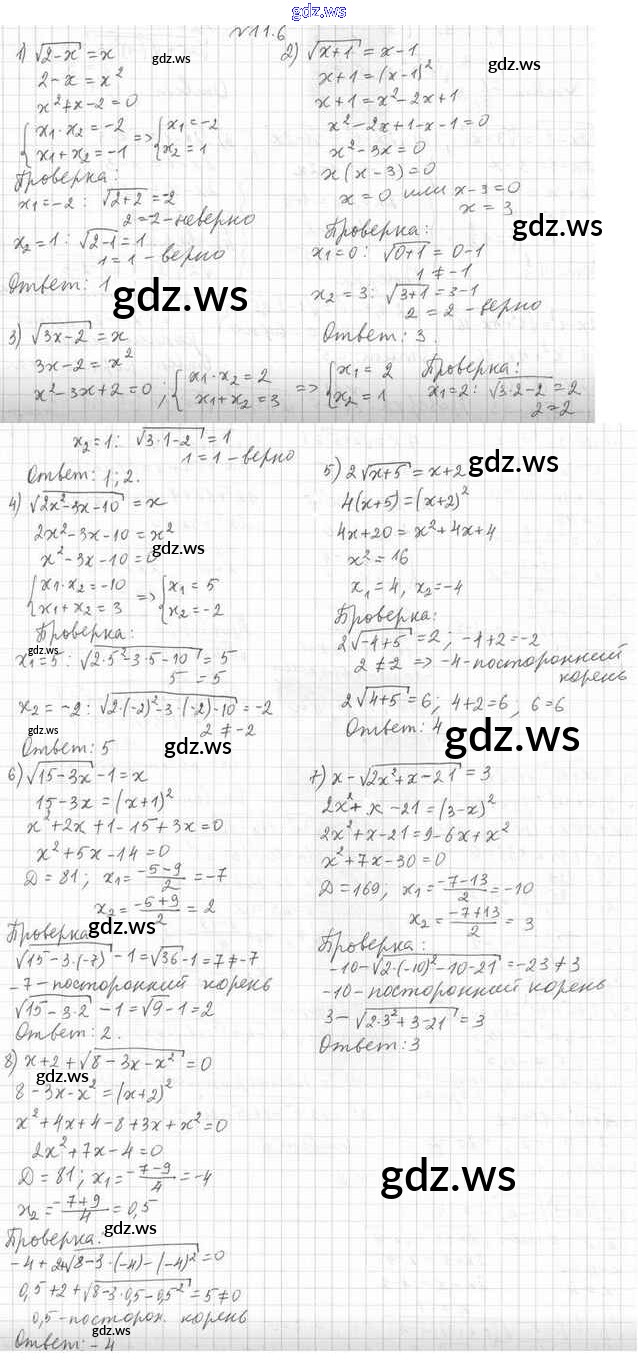 gdz.ws
№11.6
1) √(2-x) = x
2-x = x²
x²+x-2=0
{x₁·x₂=-2 => {x₁=-2
{x₁+x₂=-1 {x₂=1
Проверка:
x₁=-2: √(2+2)=-2
2=-2-неверно
x₂=1: √(2-1)=1
1=1-верно
Ответ: 1
gdz.ws
2) √(x+1) = x-1
gdz.ws
x+1=(x-1)²
x+1=x²-2x+1
x²-2x+1-x-1=0
x²-3x=0
x(x-3)=0
x=0 или x-3=0
x=3
gdz.ws
Проверка:
x₁=0: √(0+1)=0-1
1≠-1
x₂=3: √(3+1)=3-1
2=2-верно
Ответ: 3.
gdz.ws
3) √(3x-2) = x
3x-2=x²
x²-3x+2=0; {x₁·x₂=2 => {x₁=2
{x₁+x₂=3 {x₂=1
Проверка:
x₁=2: √(3·2-2)=2
2=2
x₂=1: √(3·1-2)=1
1=1-верно
Ответ: 1; 2.
4) √(2x²-3x-10) = x
2x²-3x-10=x²
gdz.ws
x²-3x-10=0
{x₁·x₂=-10 => {x₁=5
{x₁+x₂=3 {x₂=-2
Проверка:
gdz.ws
x₁=5: √(2·5²-3·5-10)=5
5=5
x₂=-2: √(2·(-2)²-3·(-2)-10)=-2
2≠-2
Ответ: 5
gdz.ws
5) 2√(x+5)=x+2
gdz.ws
4(x+5)=(x+2)²
4x+20=x²+4x+4
x²=16
x₁=4, x₂=-4
Проверка:
2√(-4+5)=2; -4+2=-2
2≠2 => -4-посторонний
корень
2√(4+5)=6; 4+2=6; 6=6
Ответ: 4
gdz.ws
6) √(15-3x)-1=x
15-3x=(x+1)²
x²+2x+1-15+3x=0
x²+5x-14=0
D=81; x₁=(-5-9)/2=-7
x₂=(-5+9)/2=2
gdz.ws
Проверка
√(15-3·(-7))-1=√36-1=7≠-7
-7-посторонний корень
√(15-3·2)-1=√9-1=2
Ответ: 2.
7) x-√(2x²+x-21)=3
2x²+x-21=(3-x)²
2x²+x-21=9-6x+x²
x²+7x-30=0
D=169, x₁=(-7-13)/2=-10
x₂=(-7+13)/2=3
Проверка:
-10-√(2·(-10)²-10-21)=-23≠3
-10-посторонний корень
3-√(2·3²+3-21)=3
Ответ: 3
8) x+2+√(8-3x-x²)=0
gdz.ws
8-3x-x²=(x+2)²
x²+4x+4-8+3x+x²=0
2x²+7x-4=0
D=81; x₁=(-7-9)/4=-4
x₂=(-7+9)/4=0,5
gdz.ws
gdz.ws
Проверка:
-4+2+√(8-3·(-4)-(-4)²)=0
0,5+2+√(8-3·0,5-0,5²)=5≠0
0,5-посторон. корень
gdz.ws
Ответ: -4